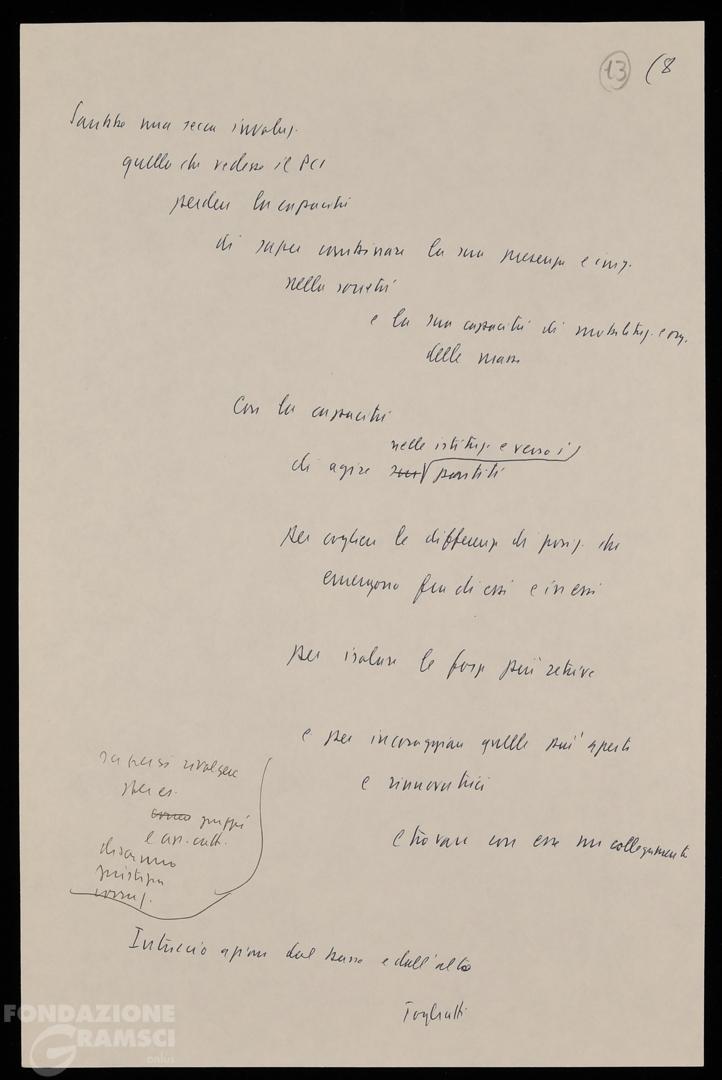 13 (8
Sarebbe una secca involuz.
quella che vedesse il PCI
perdere la capacità
di saper combinare la sua presenza e iniz.
nella società
e la sua capacità di mobilitaz. e org.
delle masse
Con la capacità
nelle istituz. e verso i
di agire sui partiti
per cogliere le differenze di posiz. che
emergono fra di essi e in essi
per isolare le forze più retrive
e per incoraggiare quelle più aperte
e rinnovatrici
e trovare con esse un collegamento
sapersi rivolgere
per es.
gruppi
e catt.
disarmo
giustizia
Intreccio azione dal basso e dall'alto
Togliatti
FONDAZIONE
GRAMSCI
onlus